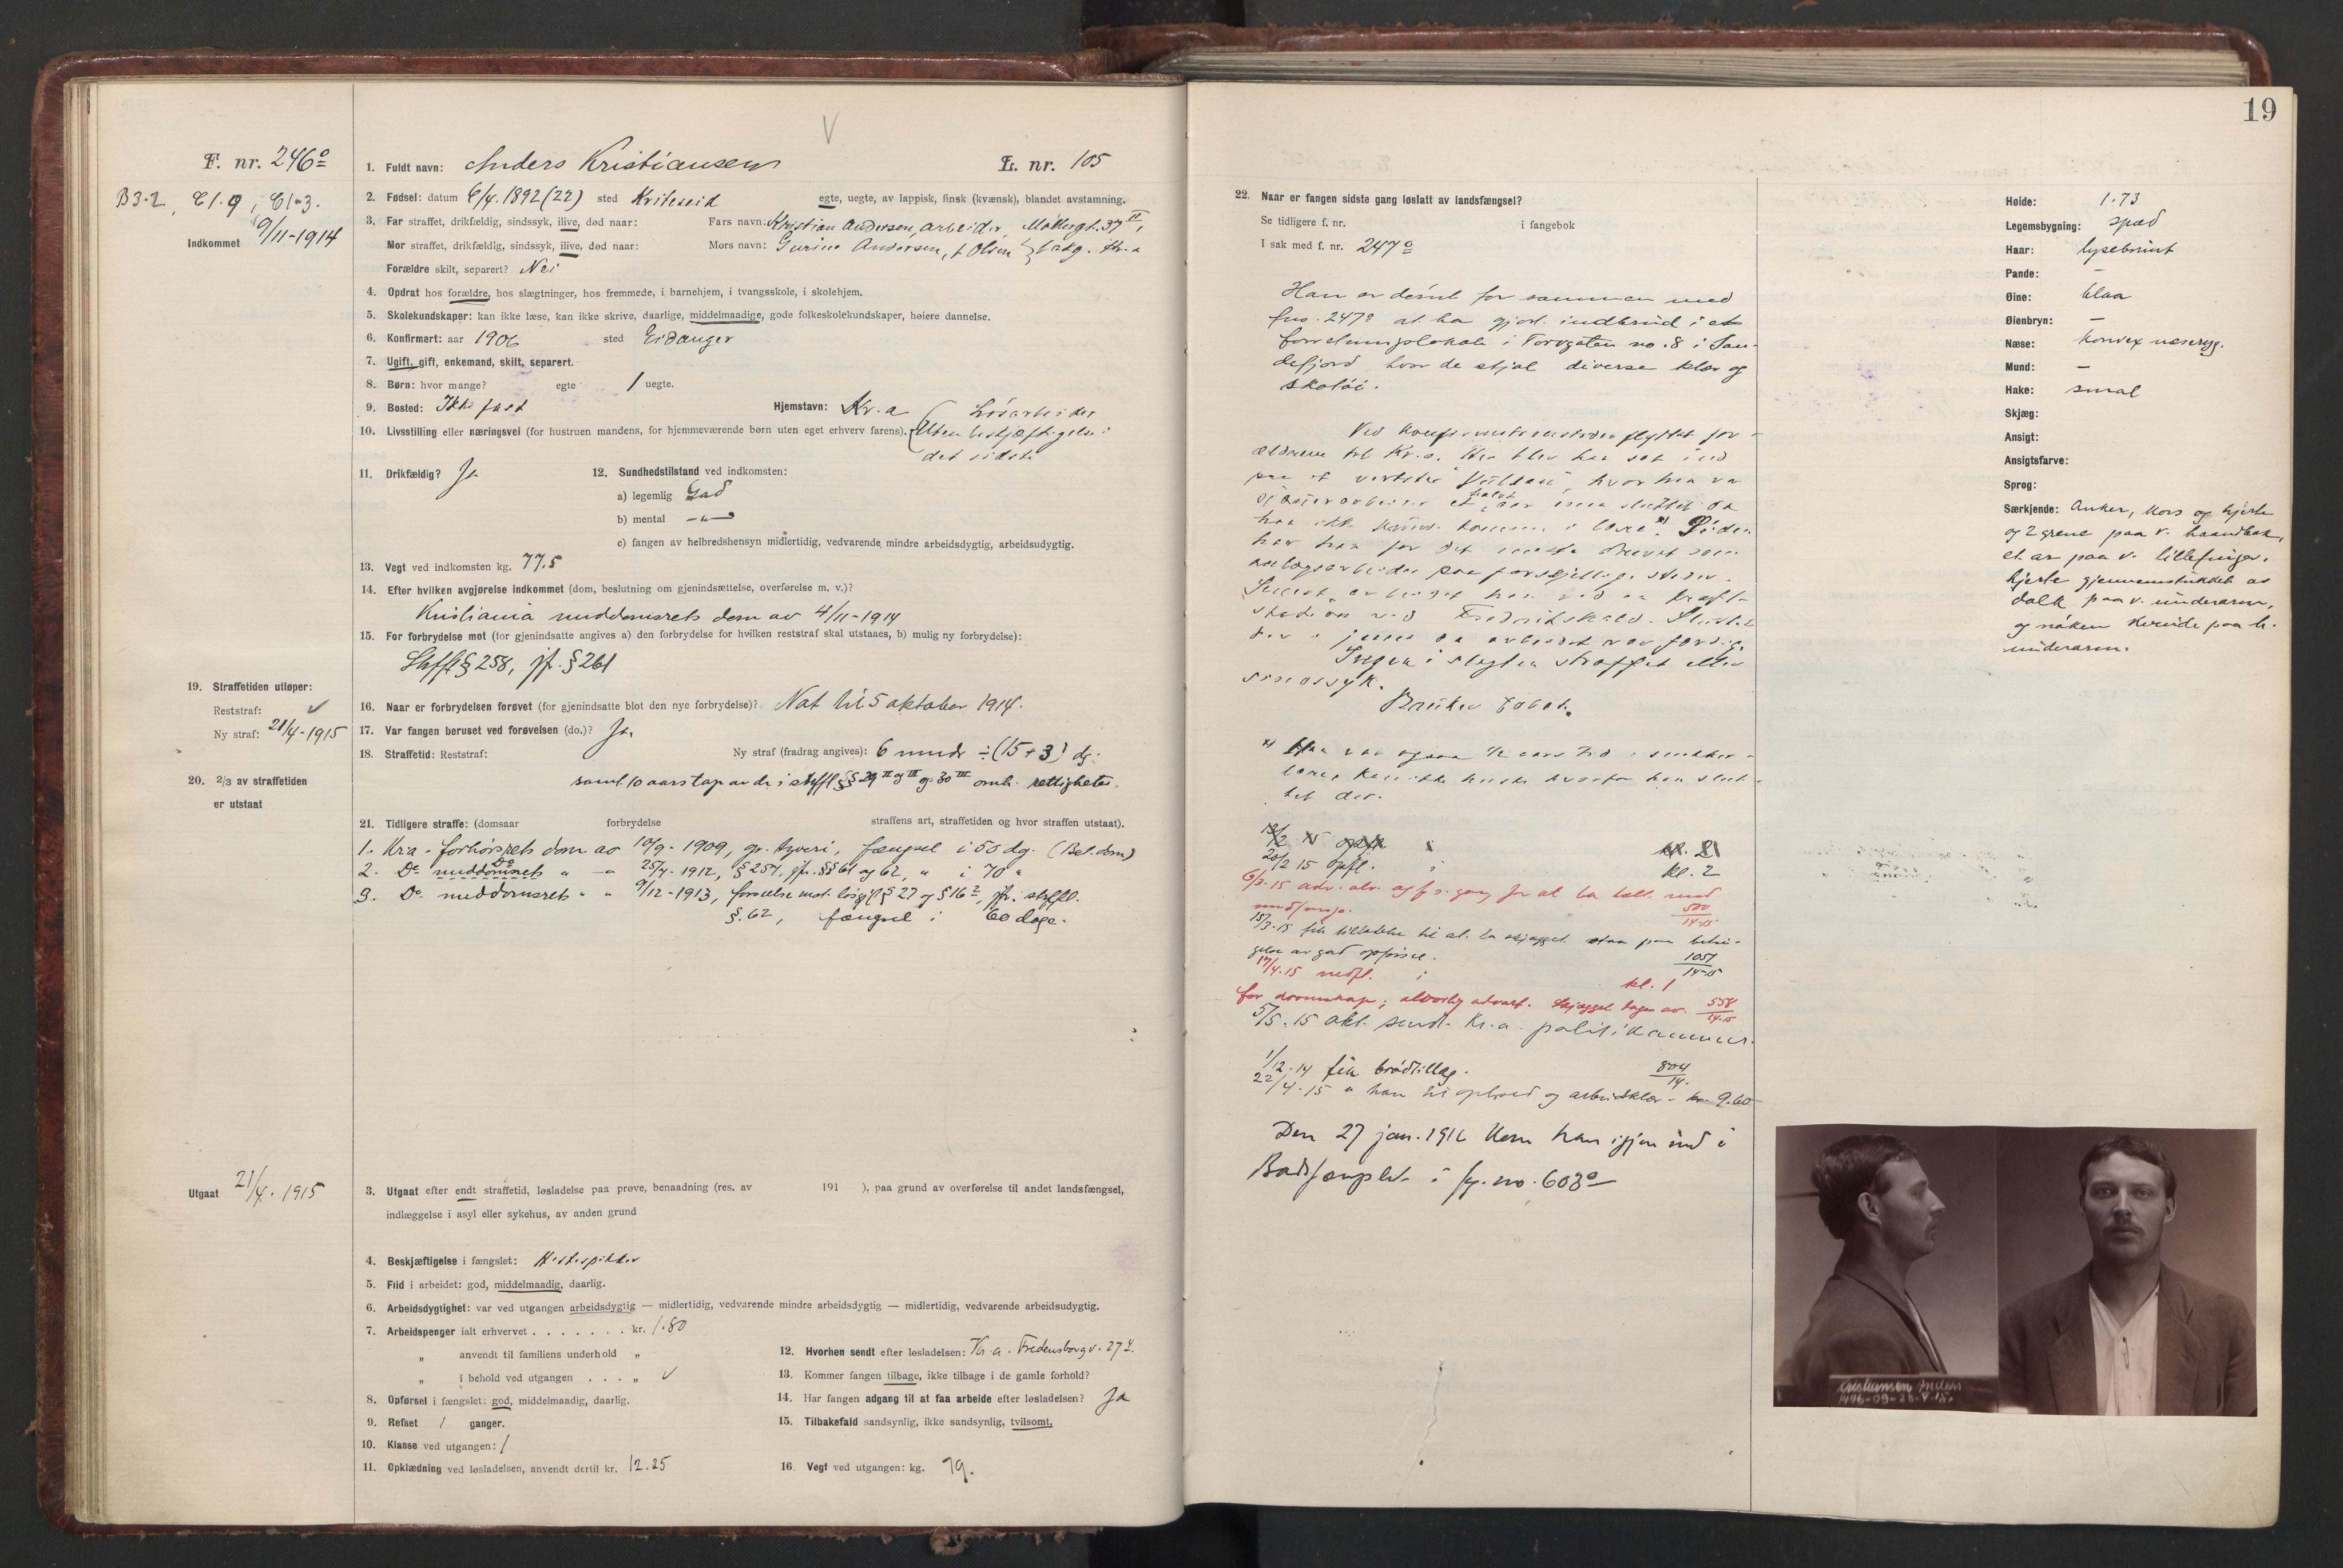 19
F. nr. 246º
1. Fuldt navn: Anders Kristiansen
L. nr. 105
B3-2, C1.9, C1-3.
2. Fødsel: datum 6/4.1892 (22) sted Kviteseid egte, uegte, av lappisk, finsk (kvænsk), blandet avstamning.
Indkommet 9/11-1914
3. Far straffet, drikfældig, sindssyk, ilive, død naar: Fars navn: Kristian Andersen, arbeider, Møllergt. 37 II,
Mor straffet, drikfældig, sindssyk, ilive, død naar: Mors navn: Gurine Andersen, f. Olsen
Forældre skilt, separert? Nei
4. Opdrat hos forældre, hos slægtninger, hos fremmede, i barnehjem, i tvangsskole, i skolehjem.
5. Skolekundskaper: kan ikke læse, kan ikke skrive, daarlige, middelmaadige, gode folkeskolekundskaper, høiere dannelse.
6. Konfirmert: aar 1906 sted Eidanger
7. Ugift, gift, enkemand, skilt, separert.
8. Børn: hvor mange? egte 1 uegte.
9. Bosted: Ikke fast Hjemstavn: Kr.a
10. Livsstilling eller næringsvei (for hustruen mandens, for hjemmeværende børn uten eget erhverv farens). Løsarbeider
Uten beskjæftigelse i
det sidste
11. Drikfældig? Ja
12. Sundhedstilstand ved indkomsten:
a) legemlig God
b) mental -"-
c) fangen av helbredshensyn midlertidig, vedvarende mindre arbeidsdygtig, arbeidsudygtig.
13. Vegt ved indkomsten kg. 77.5
14. Efter hvilken avgjørelse indkommet (dom, beslutning om gjenindsættelse, overførelse m. v.)?
Kristiania meddomsrets dom av 4/11-1914
15. For forbrydelse mot (for gjenindsatte angives a) den forbrydelse for hvilken reststraf skal utstaaes, b) mulig ny forbrydelse):
Strfl § 258, jf. § 261
19. Straffetiden utløper:
Reststraf:
Ny straf: 21/4-1915
16. Naar er forbrydelsen forøvet (for gjenindsatte blot den nye forbrydelse)? Nat til 5 oktober 1914.
17. Var fangen beruset ved forøvelsen (do.)? Ja.
18. Straffetid: Reststraf: Ny straf (fradrag angives): 6 mndr ÷ (15+3) dg.
samt 10 aars tap av de i strfl §§ 29 II og III og 30 III omh. rettigheter.
20. 2/3 av straffetiden
er utstaat
21. Tidligere straffe: (domsaar forbrydelse straffens art, straffetiden og hvor straffen utstaat).
1. Kra. forhørsrets dom av 10/9-1909, gr. tyveri, fængsel i 55 dg. (Bet. dom)
2. Do meddomsrets " - 25/4-1912, § 257, jfr. §§ 61 og 62, " i 70 "
3. Do meddomsrets " " 9/12-1913, forseelse mot løsgjl § 27 og § 16 2, jfr. strfl.
§. 62, fængsel i 60 dage.
Utgaat 21/4.1915
3. Utgaat efter endt straffetid, løsladelse paa prøve, benaadning (res. av 191 ), paa grund av overførelse til andet landsfængsel,
indlæggelse i asyl eller sykehus, av anden grund
4. Beskjæftigelse i fængslet: Hestespikker
5. Flid i arbeidet: god, middelmaadig, daarlig.
6. Arbeidsdygtighet: var ved utgangen arbeidsdygtig — midlertidig, vedvarende mindre arbeidsdygtig — midlertidig, vedvarende arbeidsudygtig.
7. Arbeidspenger ialt erhvervet . . . . . . . kr. 1.80
" anvendt til familiens underhold "
" i behold ved utgangen . . . "
8. Opførsel i fængslet: god, middelmaadig, daarlig.
9. Refset 1 ganger.
10. Klasse ved utgangen: 1
11. Opklædning ved løsladelsen, anvendt dertil kr. 12.25
12. Hvorhen sendt efter løsladelsen: Kr.a. Fredensborgv. 27
13. Kommer fangen tilbage, ikke tilbage i de gamle forhold?
14. Har fangen adgang til at faa arbeide efter løsladelsen? Ja
15. Tilbakefald sandsynlig, ikke sandsynlig, tvilsomt.
16. Vegt ved utgangen: kg. 79.
22. Naar er fangen sidste gang løslatt av landsfængsel?
Se tidligere f. nr. i fangebok
I sak med f. nr. 247º
Han er dømt for sammen med
fno. 247º at ha gjort indbrud i et
forretningslokale i Torvgaten no. 8 i San-
defjord, hvor de stjal diverse klær og
skotøi.
Ved konfirmationstiden flyttet for-
ældrene til Kr.a. Her blev han sat ind
paa et verksted
har ikke
har han for det meste
anlægsarbeider paa forskjellige steder.
Senest arbeidet han ved en kraft-
station ved Fredrikshald. Sluttet
der i juni da arbeidet var færdig.
Ingen i slegten straffet eller
sindssyk.
Bruker tobak.
x) Han var ogsaa 1/2 aars tid i snekker-
lære, kan ikke huske hvorfor han slut-
tet der.
20/2 15 opfl. i kl. 2
6/3.15
500
14-15
15/3-15 fik tillatelse til at la skjægget staa paa betin-
gelse av god opførsel. 1051
14-15
17/4.15 nedfl. i kl. 1
for dovenskap; alvorlig advart. Skjægget tages av. 558
14-15
5/5.15 akt. sendt Kr.a. politikammer.
1/12-14 fik brødtillæg. 804
14.
22/4-15 " han til ophold og arbeidsklær - kr 9.60
Den 27 jan. 1916 kom han igjen ind i
Bodsfængslet i fg. no. 603º
Høide: 1.73
Legemsbygning: spæd
Haar: lysebrunt
Pande: —
Øine: blaa
Øienbryn: —
Næse: konvex næseryg.
Mund: —
Hake: smal
Skjæg:
Ansigt:
Ansigtsfarve:
Sprog:
Særkjende: Anker, kors og hjerte
og 2 grene paa v. haandbak,
et ar paa v. lillefinger,
hjerte gjennemstukket av
dolk paa v. underarm,
og nøken kvinde paa h.
underarm.
Kristiansen Anders